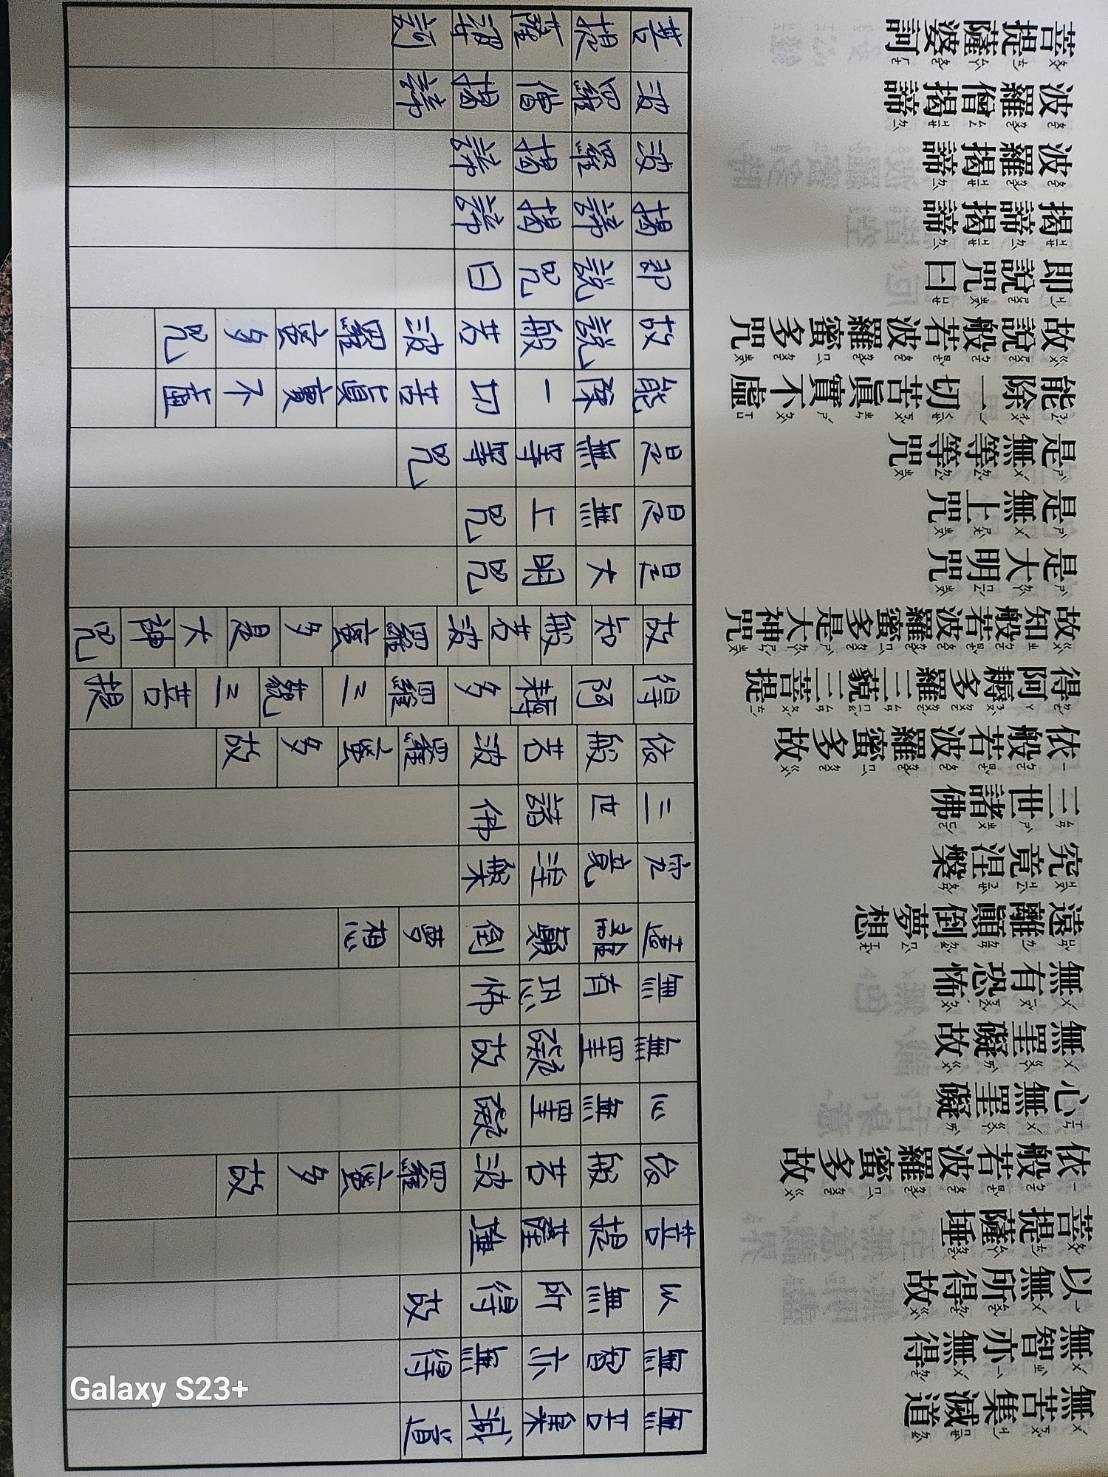 無苦集滅道
無智亦無得
以無所得故
菩提薩埵
依般若波羅蜜多故
心無罣礙
無罣礙故
無有恐怖
遠離顛倒夢想
究竟涅槃
三世諸佛
依般若波羅蜜多故
得阿耨多羅三藐三菩提
故知般若波羅蜜多是大神咒
是大明咒
是無上咒
是無等等咒
能除一切苦真實不虛
故說般若波羅蜜多咒
即說咒曰
揭諦揭諦
波羅揭諦
波羅僧揭諦
菩提薩婆訶
無苦集滅道
無智亦無得
以無所得故
菩提薩埵
依般若波羅蜜多故
心無罣礙
無罣礙故
無有恐怖
遠離顛倒夢想
究竟涅槃
三世諸佛
依般若波羅蜜多故
得阿耨多羅三藐三菩提
故知般若波羅蜜多是大神咒
是大明咒
是無上咒
是無等等咒
能除一切苦真實不虛
故說般若波羅蜜多咒
即說咒曰
揭諦揭諦
波羅揭諦
波羅僧揭諦
菩提薩婆訶
Galaxy S23+